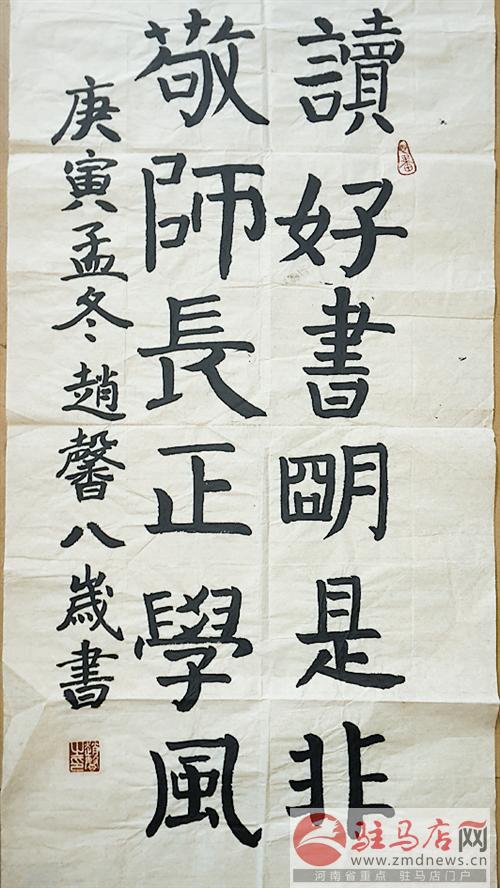 讀好書明是非
敬師長正學風
庚寅孟冬趙馨八歲書
驻马店网
www.zmdnews.cn
河南省重点 驻马店门户